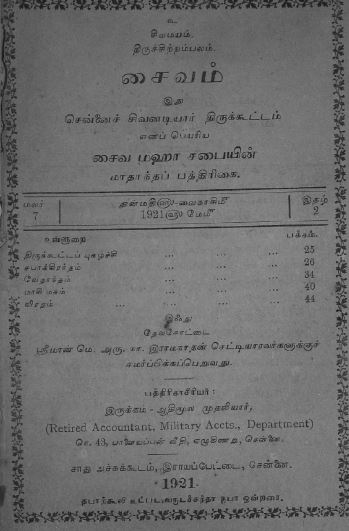 உ
சிவமயம்.
திருச்சிற்றம்பலம்.
சைவம்
இது
சென்னைச் சிவனடியார் திருக்கூட்டம்
எனப் பெயரிய
சைவ மஹா சபையின்
மாதாந்தப் பத்திரிகை.
மலர் 7
துன்மதி௵-வைகாசி௴
1921௵ மே௴
இதழ் 2
உள்ளுறை பக்கம்.
திருக்கூட்டப் புகழ்ச்சி ... ... ... 25
சபாக்கிரந்தம் ... ... ... 26
வேதாந்தம் ... ... ... 34
மாசி மகம் ... ... ... 40
விரதம் ... ... ... 44
இஃது
தேவகோட்டை
ஸ்ரீமான் மெ. அரு. நா. இராமநாதன் செட்டியாரவர்களுக்குச்
சமர்ப்பிக்கப்பெறுவது.
பத்திராசிரியர்:
இருக்கம் - ஆதிமூல முதலியார்,
(Retired Accountant, Military Accts., Department)
நெ. 43, வீதி, ஏழுகிணறு, சென்னை.
சாது அச்சுக்கூடம், இராயப்பேட்டை, சென்னை.
1921
தபாற்கூலி உட்பட வருடச்சந்தா ரூபா ஒன்றரை.